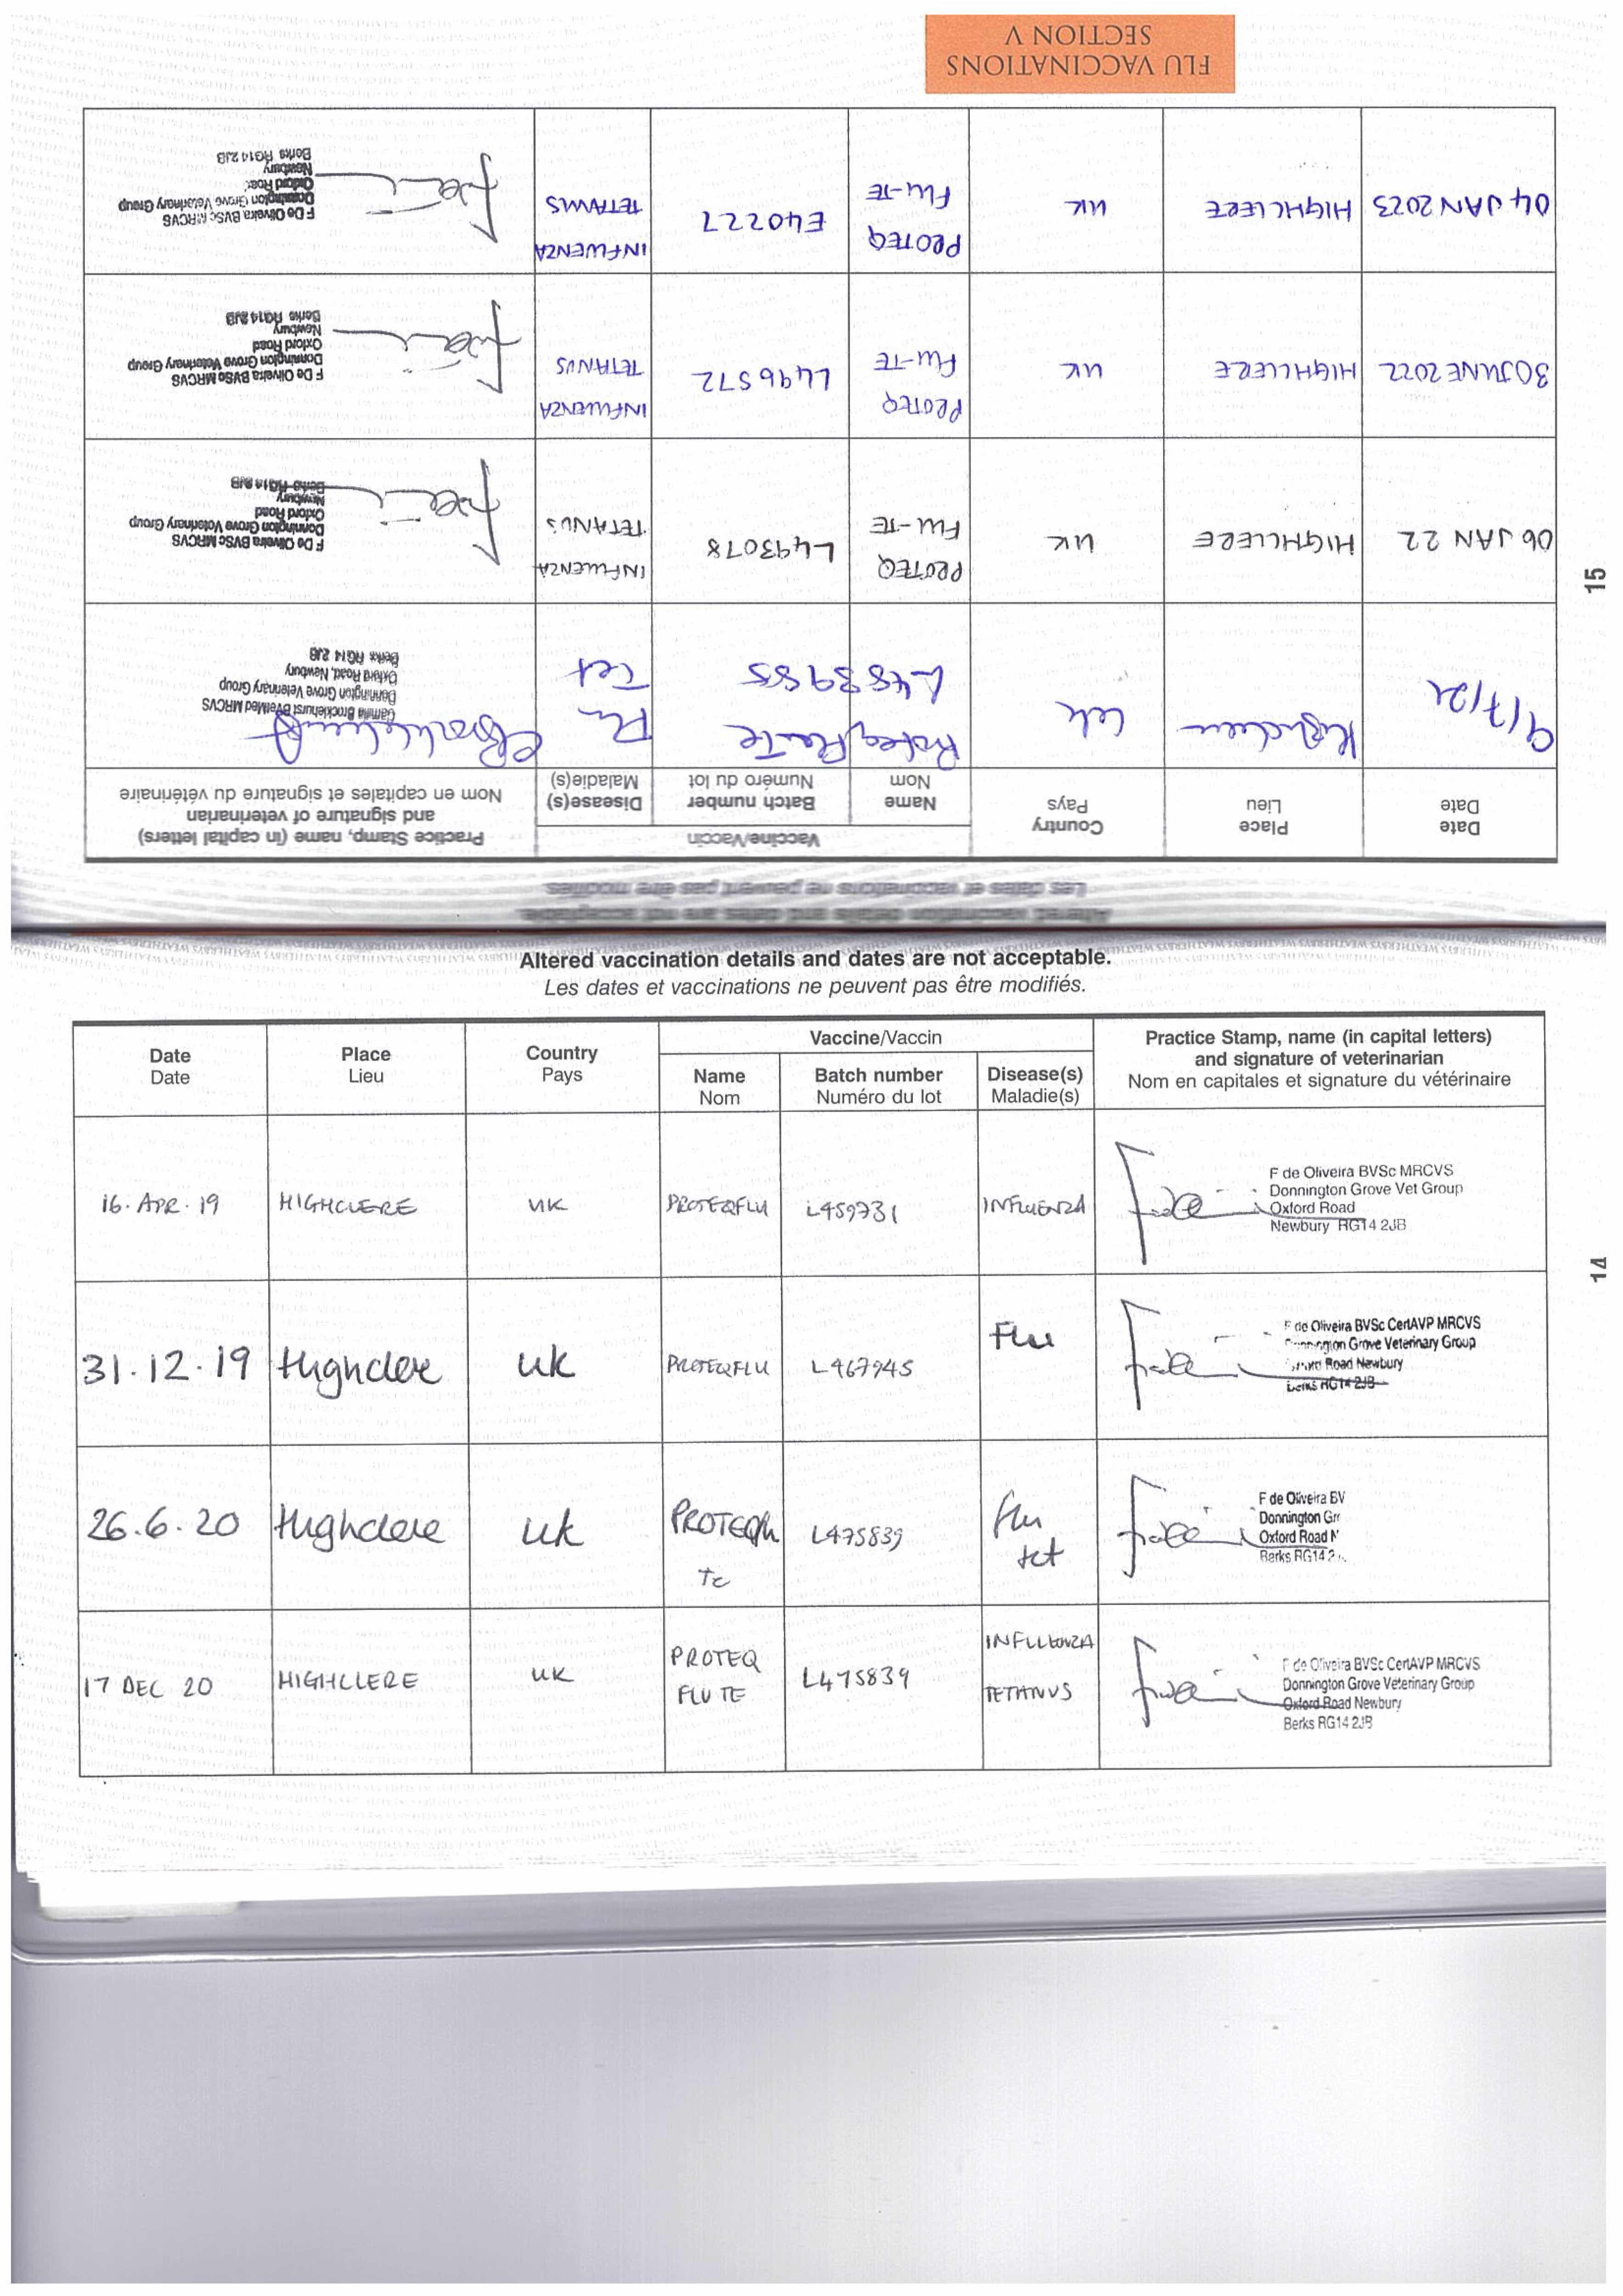 FLU VACCINATIONS
SECTION V
Date
Date
Place
Lieu
Country
Pays
Vaccine/Vaccin
Name
Nom
Batch number
Numéro du lot
Disease(s)
Maladie(s)
Practice Stamp, name (in capital letters)
and signature of veterinarian
Nom en capitales et signature du vétérinaire
9/7/21
Uk
Proteq Flu Te
Flu
Tet
Camilla Brocklehurst BVetMed MRCVS
Donnington Grove Veterinary Group
Oxford Road, Newbury
Berks RG14 2JB
06 JAN 22
HIGHCLERE
UK
PROTEQ
FLU-TE
L493078
INFLUENZA
TETANUS
F De Oliveira BVSc MRCVS
Donnington Grove Veterinary Group
Oxford Road
Newbury
Berks RG14 2JB
30 JUNE 2022
HIGHCLERE
UK
PROTEQ
FLU-TE
L496572
INFLUENZA
TETANUS
F De Oliveira BVSc MRCVS
Donnington Grove Veterinary Group
Oxford Road
Newbury
Berks RG14 2JB
04 JAN 2023
HIGHCLERE
UK
PROTEQ
FLU-TE
E40227
INFLUENZA
TETANUS
F De Oliveira BVSc MRCVS
Donnington Grove Veterinary Group
Oxford Road
Newbury
Berks RG14 2JB
15
Altered vaccination details and dates are not acceptable.
Les dates et vaccinations ne peuvent pas être modifiés.
Altered vaccination details and dates are not acceptable.
Les dates et vaccinations ne peuvent pas être modifiés.
Date
Date
Place
Lieu
Country
Pays
Vaccine/Vaccin
Name
Nom
Batch number
Numéro du lot
Disease(s)
Maladie(s)
Practice Stamp, name (in capital letters)
and signature of veterinarian
Nom en capitales et signature du vétérinaire
16. APR. 19
HIGHCLERE
UK
PROTEQFLU
L459731
INFLUENZA
F de Oliveira BVSc MRCVS
Donnington Grove Vet Group
Oxford Road
Newbury RG14 2JB
31.12.19
Highclere
UK
PROTEQFLU
L467945
Flu
F de Oliveira BVSc CertAVP MRCVS
Donnington Grove Veterinary Group
Oxford Road Newbury
Berks RG14 2JB
26.6.20
Highclere
UK
PROTEQFlu
Te
L475839
Flu
tet
F de Oliveira BV
Donnington Gr
Oxford Road N
Berks RG14 2
17 DEC 20
HIGHCLERE
UK
PROTEQ
FLU TE
L475839
INFLUENZA
TETANUS
F de Oliveira BVSc CertAVP MRCVS
Donnington Grove Veterinary Group
Oxford Road Newbury
Berks RG14 2JB
14